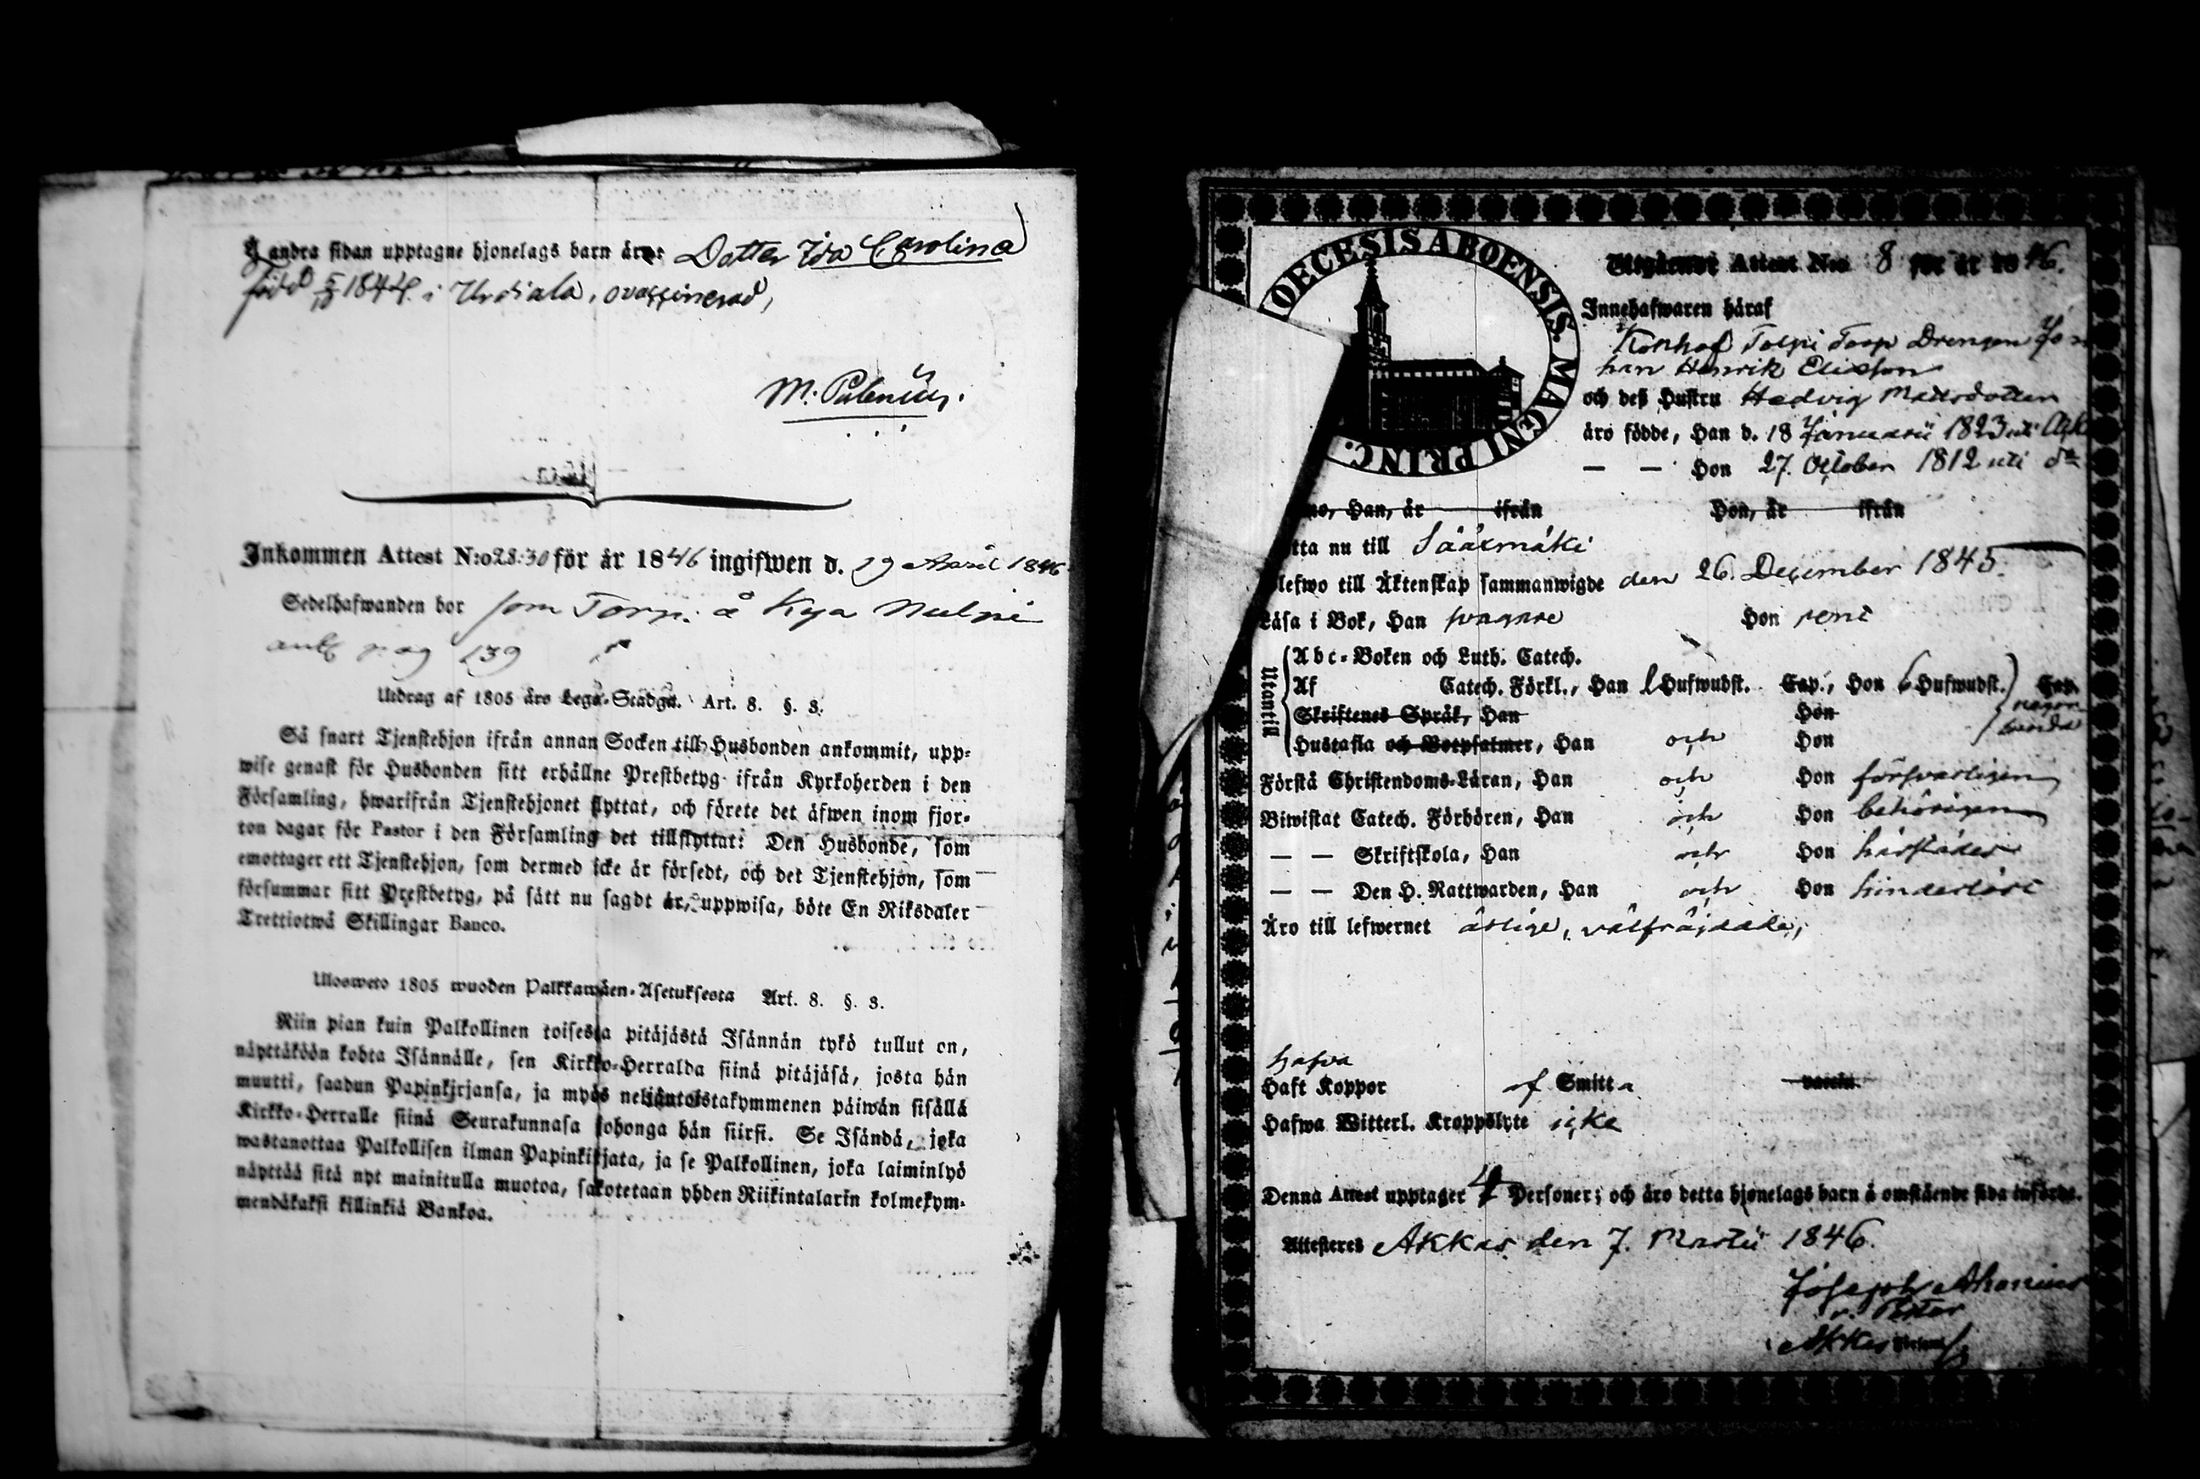 andra sidan upptagne hjonelags barn äro: Dotter Ida Carolina
född 1844 i Urdiala, ovaccinerad,
M. Palenius.
Inkommen Attest N:o 28-30 för år 1846 ingifwen d. 19 April 1846
Sedelhafwanden bor som Torp. å Kyа
pag 139
Utdrag af 1805 års Lego-Stadga. Art. 8. §. 3.
Så snart Tjenstehjon ifrån annan Socken till Husbonden ankommit, upp-
wise genast för Husbonden sitt erhållne Prestbetyg ifrån Kyrkoherden i den
Församling, hwarifrån Tjenstehjonet flyttat, och förete det äfwen inom fjor-
ton dagar för Pastor i den Församling det tillflyttat: Den Husbonde, som
emottager ett Tjenstehjon, som dermed icke är försedt, och det Tjenstehjon, som
försummar sitt Prestbetyg, på sätt nu sagdt är, uppwisa, böte En Riksdaler
Trettiotwå Skillingar Banco.
Uloswето 1805 wuoden Palkkawäen-Asetuksesta Art. 8. §. 3.
Niin pian kuin Palkollinen toisesta pitäjästä Isännän tykö tullut on,
näyttäköön kohta Isännälle, sen Kirkko-Herralda siinä pitäjäsä, josta hän
muutti, saadun Papinkirjansa, ja myös neljäntoistakymmenen päiwän sisällä
Kirkko-Herralle siinä Seurakunnasa johonga hän siirsi. Se Isändä, joka
wastanottaa Palkollisen ilman Papinkirjata, ja se Palkollinen, joka laiminlyö
näyttää sitä nyt mainitulla muotoa, sakotetaan yhden Riikintalarin kolmekym-
mendäkaksi killinkiä Bankoa.
DIOECESIS ABOENSIS. MAGNI PRINC.
Utgående Attest N:o 8 för år 1846.
Innehafwaren häraf
Konhof Tolpi Torp Drengen Jo
han Henrik Eliasson
och deß Hustru Hedvig Mattsdotter
äro födde, Han d. 18 Januarii 1823 uti
— — Hon 27. October 1812 uti d:o
Han, år ifrån Hon, år ifrån
nu till Sääxmäki
till Äktenskap sammanwigde den 26. December 1845.
Läsa i Bok, Han svagare Hon rent
Utantill
Abc-Boken och Luth. Catech.
Af Catech. Förkl., Han 1 Hufwudst. Cap., Hon 6 Hufwudst. Cap.
Skriftenes Språk, Han Hon
Hustafla och Botpsalmer, Han och Hon
Förstå Christendoms-Läran, Han och Hon försvarligen
Biwistat Catech. Förhören, Han och Hon behörigen
— — Skriftskola, Han och Hon härstädes
— — Den H. Nattwarden, Han och Hon hinderlöst
Äro till lefwernet ärlige, välfräjdade,
hafva
Haft Koppor af Smitta vaccin.
Hafwa Witterl. Kroppslyte icke
Denna Attest upptager 4 Personer; och äro detta hjonelags barn å omstående sida införde.
Attesteres Akkas den 7. Martii 1846.
Joseph
v. Pastor
Akkas